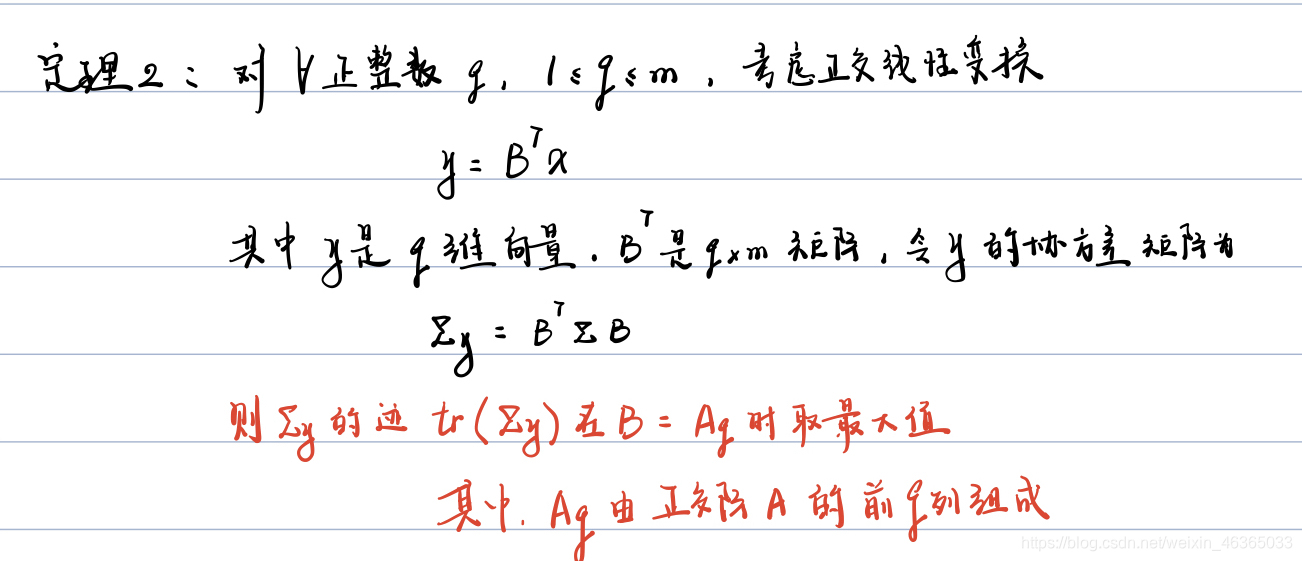 定理2：对∀正整数 q, 1≤q≤m，考虑正交线性变换
y = Bᵀx
其中 y是 q 维向量．Bᵀ是 q×m 矩阵，令 y 的协方差矩阵为
Σy = BᵀΣB
则 Σy 的迹 tr(Σy) 在 B = Aq 时取最大值
其中. Aq 由正交阵 A 的前 q列组成
https://blog.csdn.net/weixin_46365033